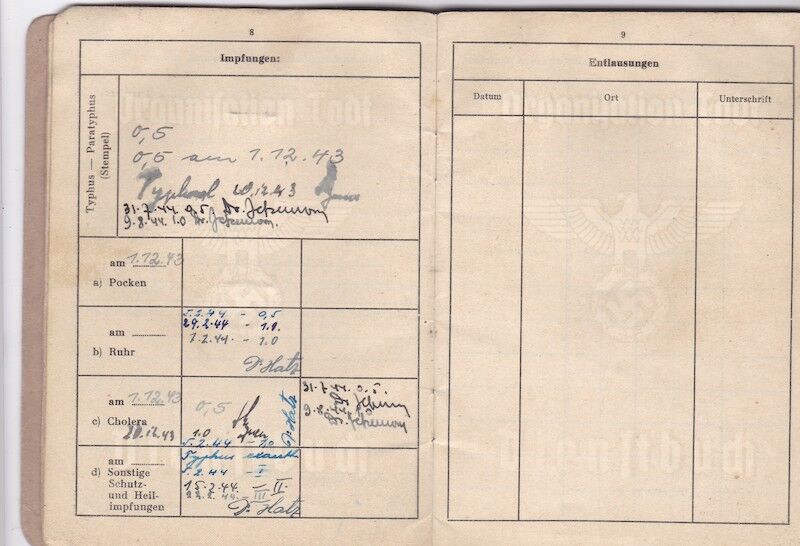 8
Impfungen:
Typhus — Paratyphus
(Stempel)
0,5
0,5 am 1.12.43
Typhoral 20.12.43
31.7.44. 0.5
9.8.44. 1.0 Dr.
am 1.12.43
a) Pocken
am
b) Ruhr
5.2.44 - 0,5
- 1.0
- 1.0
Dr. Hatz
am 1.12.43
c) Cholera
20.12.43
0,5
1.0
5.2.44 - 1.0
Dr. Hatz
31.7.44. 0.5.
9.8.44
Dr.
am
d) Sonstige
Schutz-
und Heil-
impfungen
Typhus exanth.
5.2.44 - I
15.2.44. - II
- III
Dr. Hatz
9
Entlausungen
Datum
Ort
Unterschrift
Organisation Todt